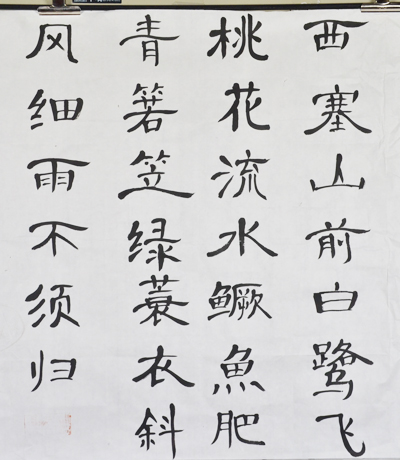 西塞山前白鹭飞
桃花流水鳜魚肥
青箬笠绿蓑衣斜
风细雨不须归